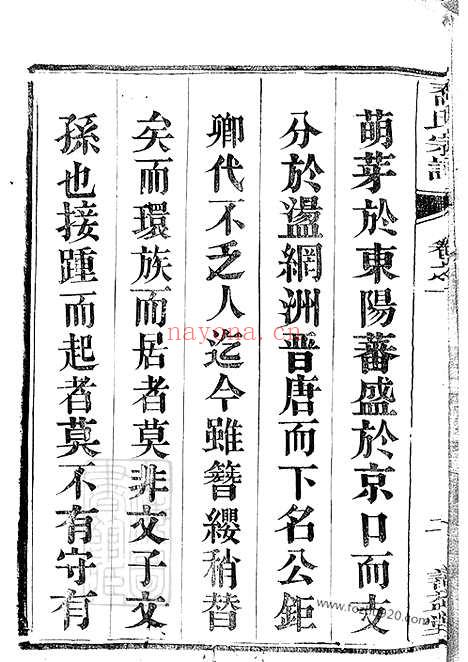 氏宗譜
卷之一
萌芽於東陽蕃盛於京口而支
分於盪網洲晋唐而下名公鉅
卿代不乏人迄今雖簪纓稍替
矣而環族而居者莫非文子文
孫也接踵而起者莫不有守有
nayona.cn